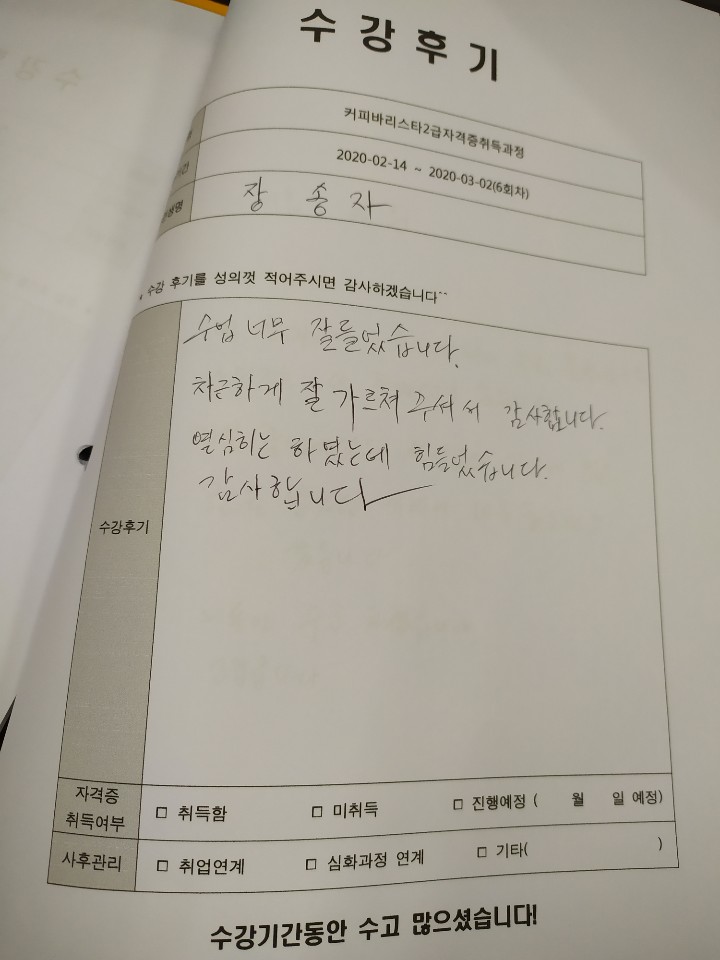 수강후기
커피바리스타2급자격증취득과정
2020-02-14 ~ 2020-03-02(6회차)
장 송 자
수강 후기를 성의껏 적어주시면 감사하겠습니다~~
수업 너무 잘들었습니다.
차근하게 잘 가르쳐 주셔서 감사합니다.
열심히는 하였는데 힘들었습니다.
감사합니다
수강후기
자격증
취득여부
□ 취득함 □ 미취득 □ 진행예정 ( 월 일 예정)
사후관리 □ 취업연계 □ 심화과정 연계 □ 기타( )
수강기간동안 수고 많으셨습니다!